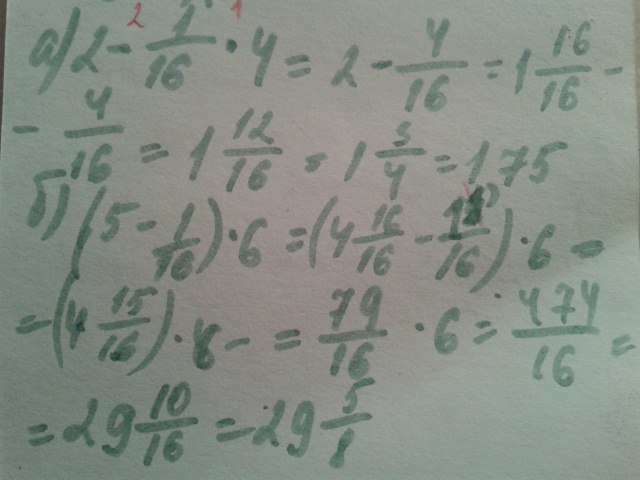 а) 2 - 1/16 · 4 = 2 - 4/16 = 1 16/16 -
- 4/16 = 1 12/16 = 1 3/4 = 1 75
б) (5 - 1/16) · 6 = (4 16/16 - 1/16) · 6 =
= (4 15/16) · 6 - = 79/16 · 6 = 474/16 =
= 29 10/16 = 29 5/8